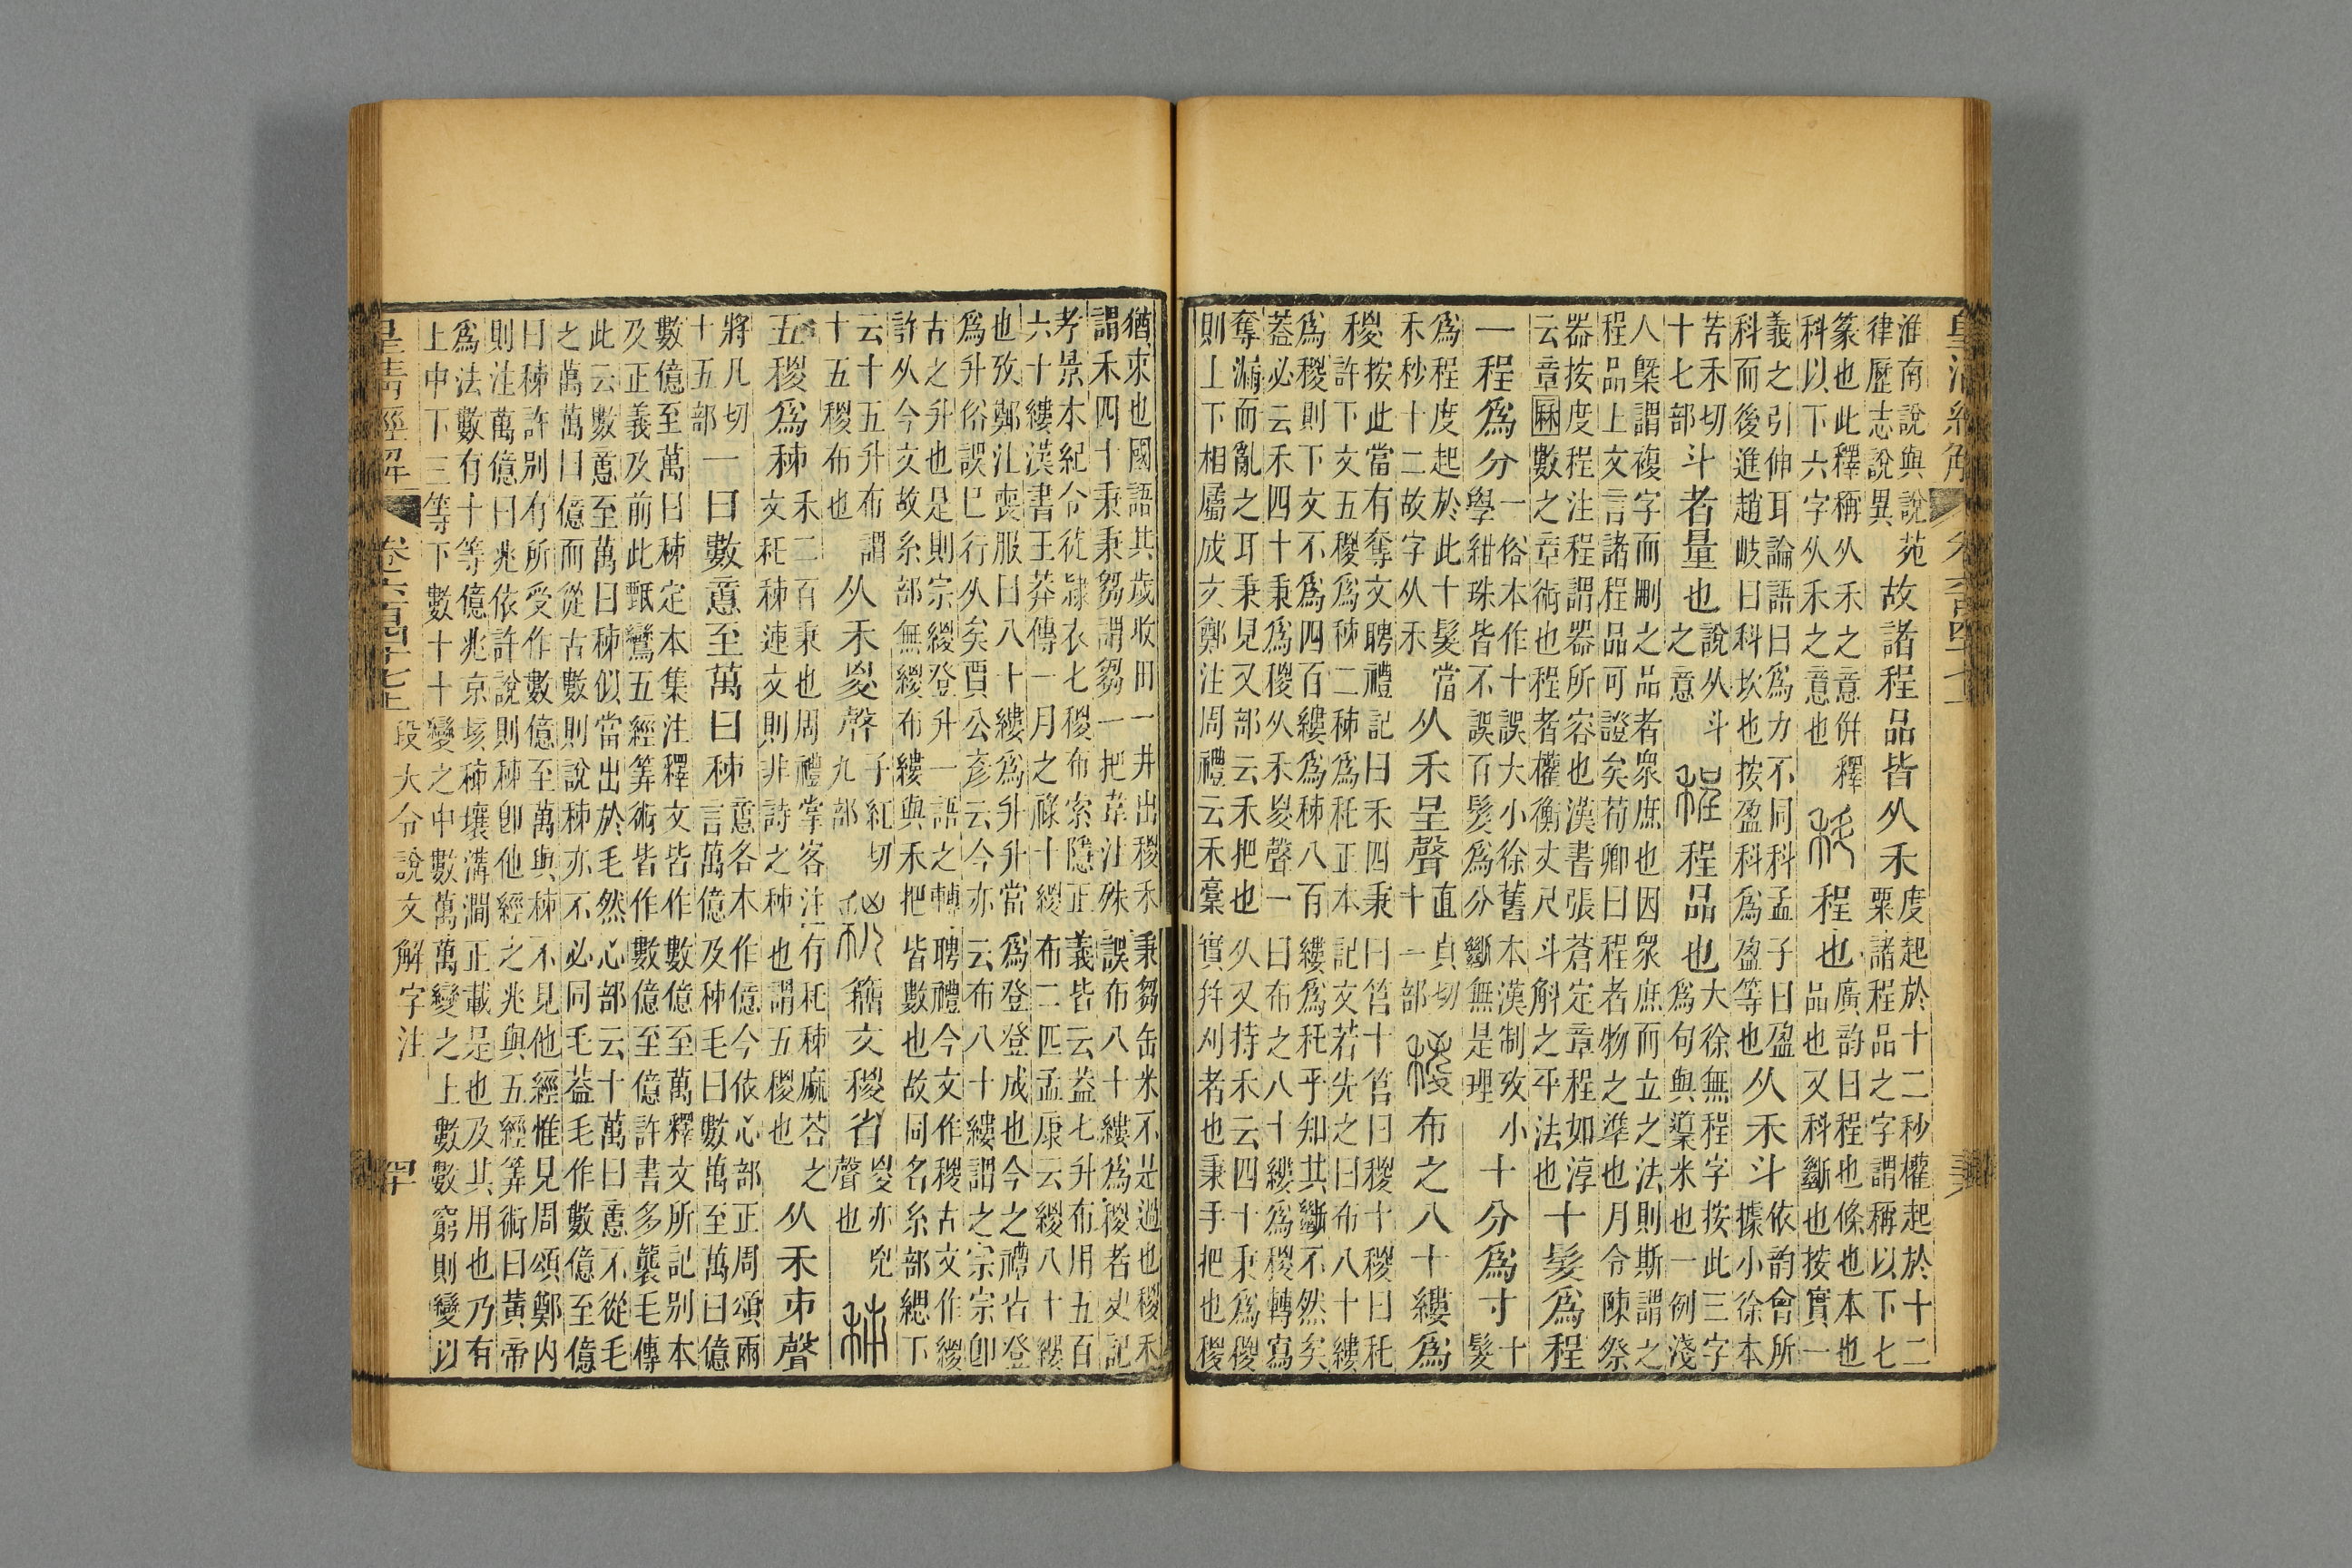 皇清經解
淮南說與說苑
律歷志說異
故諸程品皆从禾
度起於十二秒權起於十二
粟諸程品之字謂稱以下七
篆也此釋稱从禾之意併釋
科以下六字从禾之意也
科 程也
廣韵曰程也條也本也
品也又科斷也按實一
義之引伸耳論語曰爲力不同科孟子曰盈
科而後進趙岐曰科坎也按盈科爲盈等也
从禾斗
依韵會所
據小徐本
苦禾切
十七部
斗者量也
說从斗
之意
程 程品也
大徐無程字按此三字
爲句與㯱米也一例淺
人槩謂複字而刪之品者眾庶也因眾庶而立之法則斯謂之
程品上文言諸程品可證矣荀卿曰程者物之準也月令陳祭
器按度程注程謂器所容也漢書張蒼定章程如淳
云章厤數之章術也程者權衡丈尺斗斛之平法也
十髮爲程
一程爲分
一俗本作十誤大小徐舊本漢制攷小
學紺珠皆不誤百髮爲分斷無是理
十分爲寸
十
髮
爲程度起於此十髮當
禾秒十二故字从禾
从禾呈聲
直貞切
十一部
稯 布之八十縷爲
稯
按此當有奪文聘禮記曰禾四秉曰筥十筥曰稯十稯曰秅
許下文五稯爲秭二秭爲秅正本記文若先之曰布八十縷
爲稯則下文不爲四百縷爲秭八百縷爲秅乎知其斷不然矣
葢必云禾四十秉爲稯从禾㚇聲一曰布之八十縷爲稯轉寫
奪漏而亂之耳秉見又部云禾把也从又持禾云四十秉爲稯
則上下相屬成文鄭注周禮云禾稾實幷刈者也秉手把也稯
猶束也國語其歲收田一井出稯禾秉芻缶米不是過也稯禾
謂禾四十秉秉芻謂芻一把韋注殊誤布八十縷爲稯者史記
孝景本紀令徒隸衣七稯布索隱正義皆云葢七升布用五百
六十縷漢書王莽傳一月之祿十緵布二匹孟康云緵八十縷
也攷鄭注喪服曰八十縷爲升升當爲登登成也今之禮古登
爲升俗誤巳行久矣賈公彥云今亦云布八十縷謂之宗宗卽
古之升也是則宗緵登升一語之轉聘禮今文作稯古文作緵
許从今文故糸部無緵布縷與禾把皆數也故同名糸部緦下
云十五升布謂
十五稯布也
从禾㚇聲
子紅切
九部
籒文稯省
㚇亦
聲也
秭
五稯爲秭
禾二百秉也周禮掌客注有秅秭麻荅之
文秅秭連文則非詩之秭也謂五稯也
从禾𠂔聲
將几切
十五部
一曰數𢡃至萬曰秭
𢡃各本作億今依心部正周頌兩
言萬億及秭毛曰數萬至萬曰億
數億至萬曰秭定本集注釋文皆作數億至萬釋文所記別本
及正義及前此甄鸞五經筭術皆作數億至億許書多襲毛傳
此云數𢡃至萬曰秭似當出於毛然心部云十萬曰𢡃不從毛
之萬萬曰億而從古數則說秭亦不必同毛葢毛作數億至億
曰秭許別有所受作數億至萬與秭不見他經惟見周頌鄭内
則注萬億曰兆依許說則秭卽他經之兆與五經筭術曰黃帝
爲法數有十等億兆京垓秭壤溝澗正載是也及其用也乃有
上中下三等下數十十變之中數萬萬變之上數數窮則變以
皇清經解 卷六百四十七上 段大令說文解字注